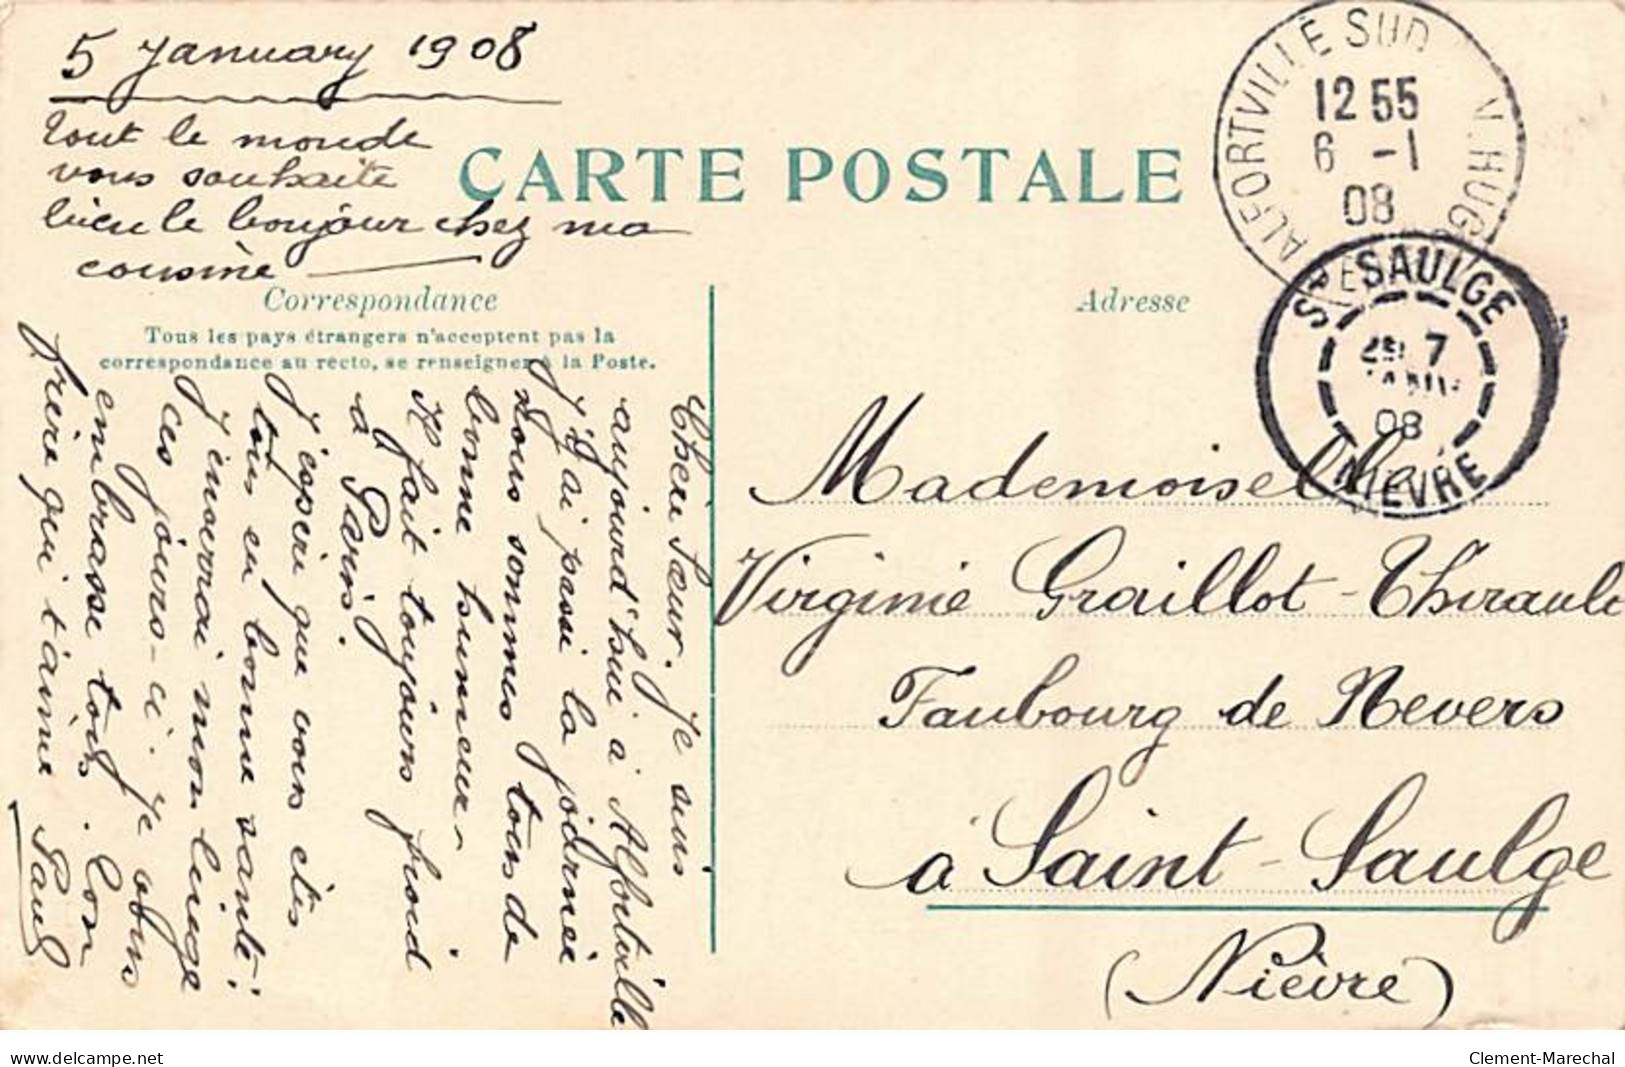 5 January 1908
Tout le monde
vous souhaite
bien le bonjour chez ma
cousine
CARTE POSTALE
Correspondance
Tous les pays étrangers n'acceptent pas la
correspondance au recto, se renseigner à la Poste.
Adresse
ALFORTVILLE SUD
12 55
6 -1
08
ST SAULGE
7
08
NIÈVRE
Chère Sœur. Je suis
aujourd'hui à Alfortville
J'y ai passé la journée
Nous sommes tous de
bonne humeur
Il fait toujours froid
à Paris.
J'espère que vous êtes
tous en bonne santé.
J'enverrai mon linge
ces jours-ci. Je vous
embrasse tous. Ton
frère qui t'aime Paul
Mademoiselle
Virginie Graillot-Thirault
Faubourg de Nevers
à Saint-Saulge
(Nièvre)
www.delcampe.net
Clement-Marechal